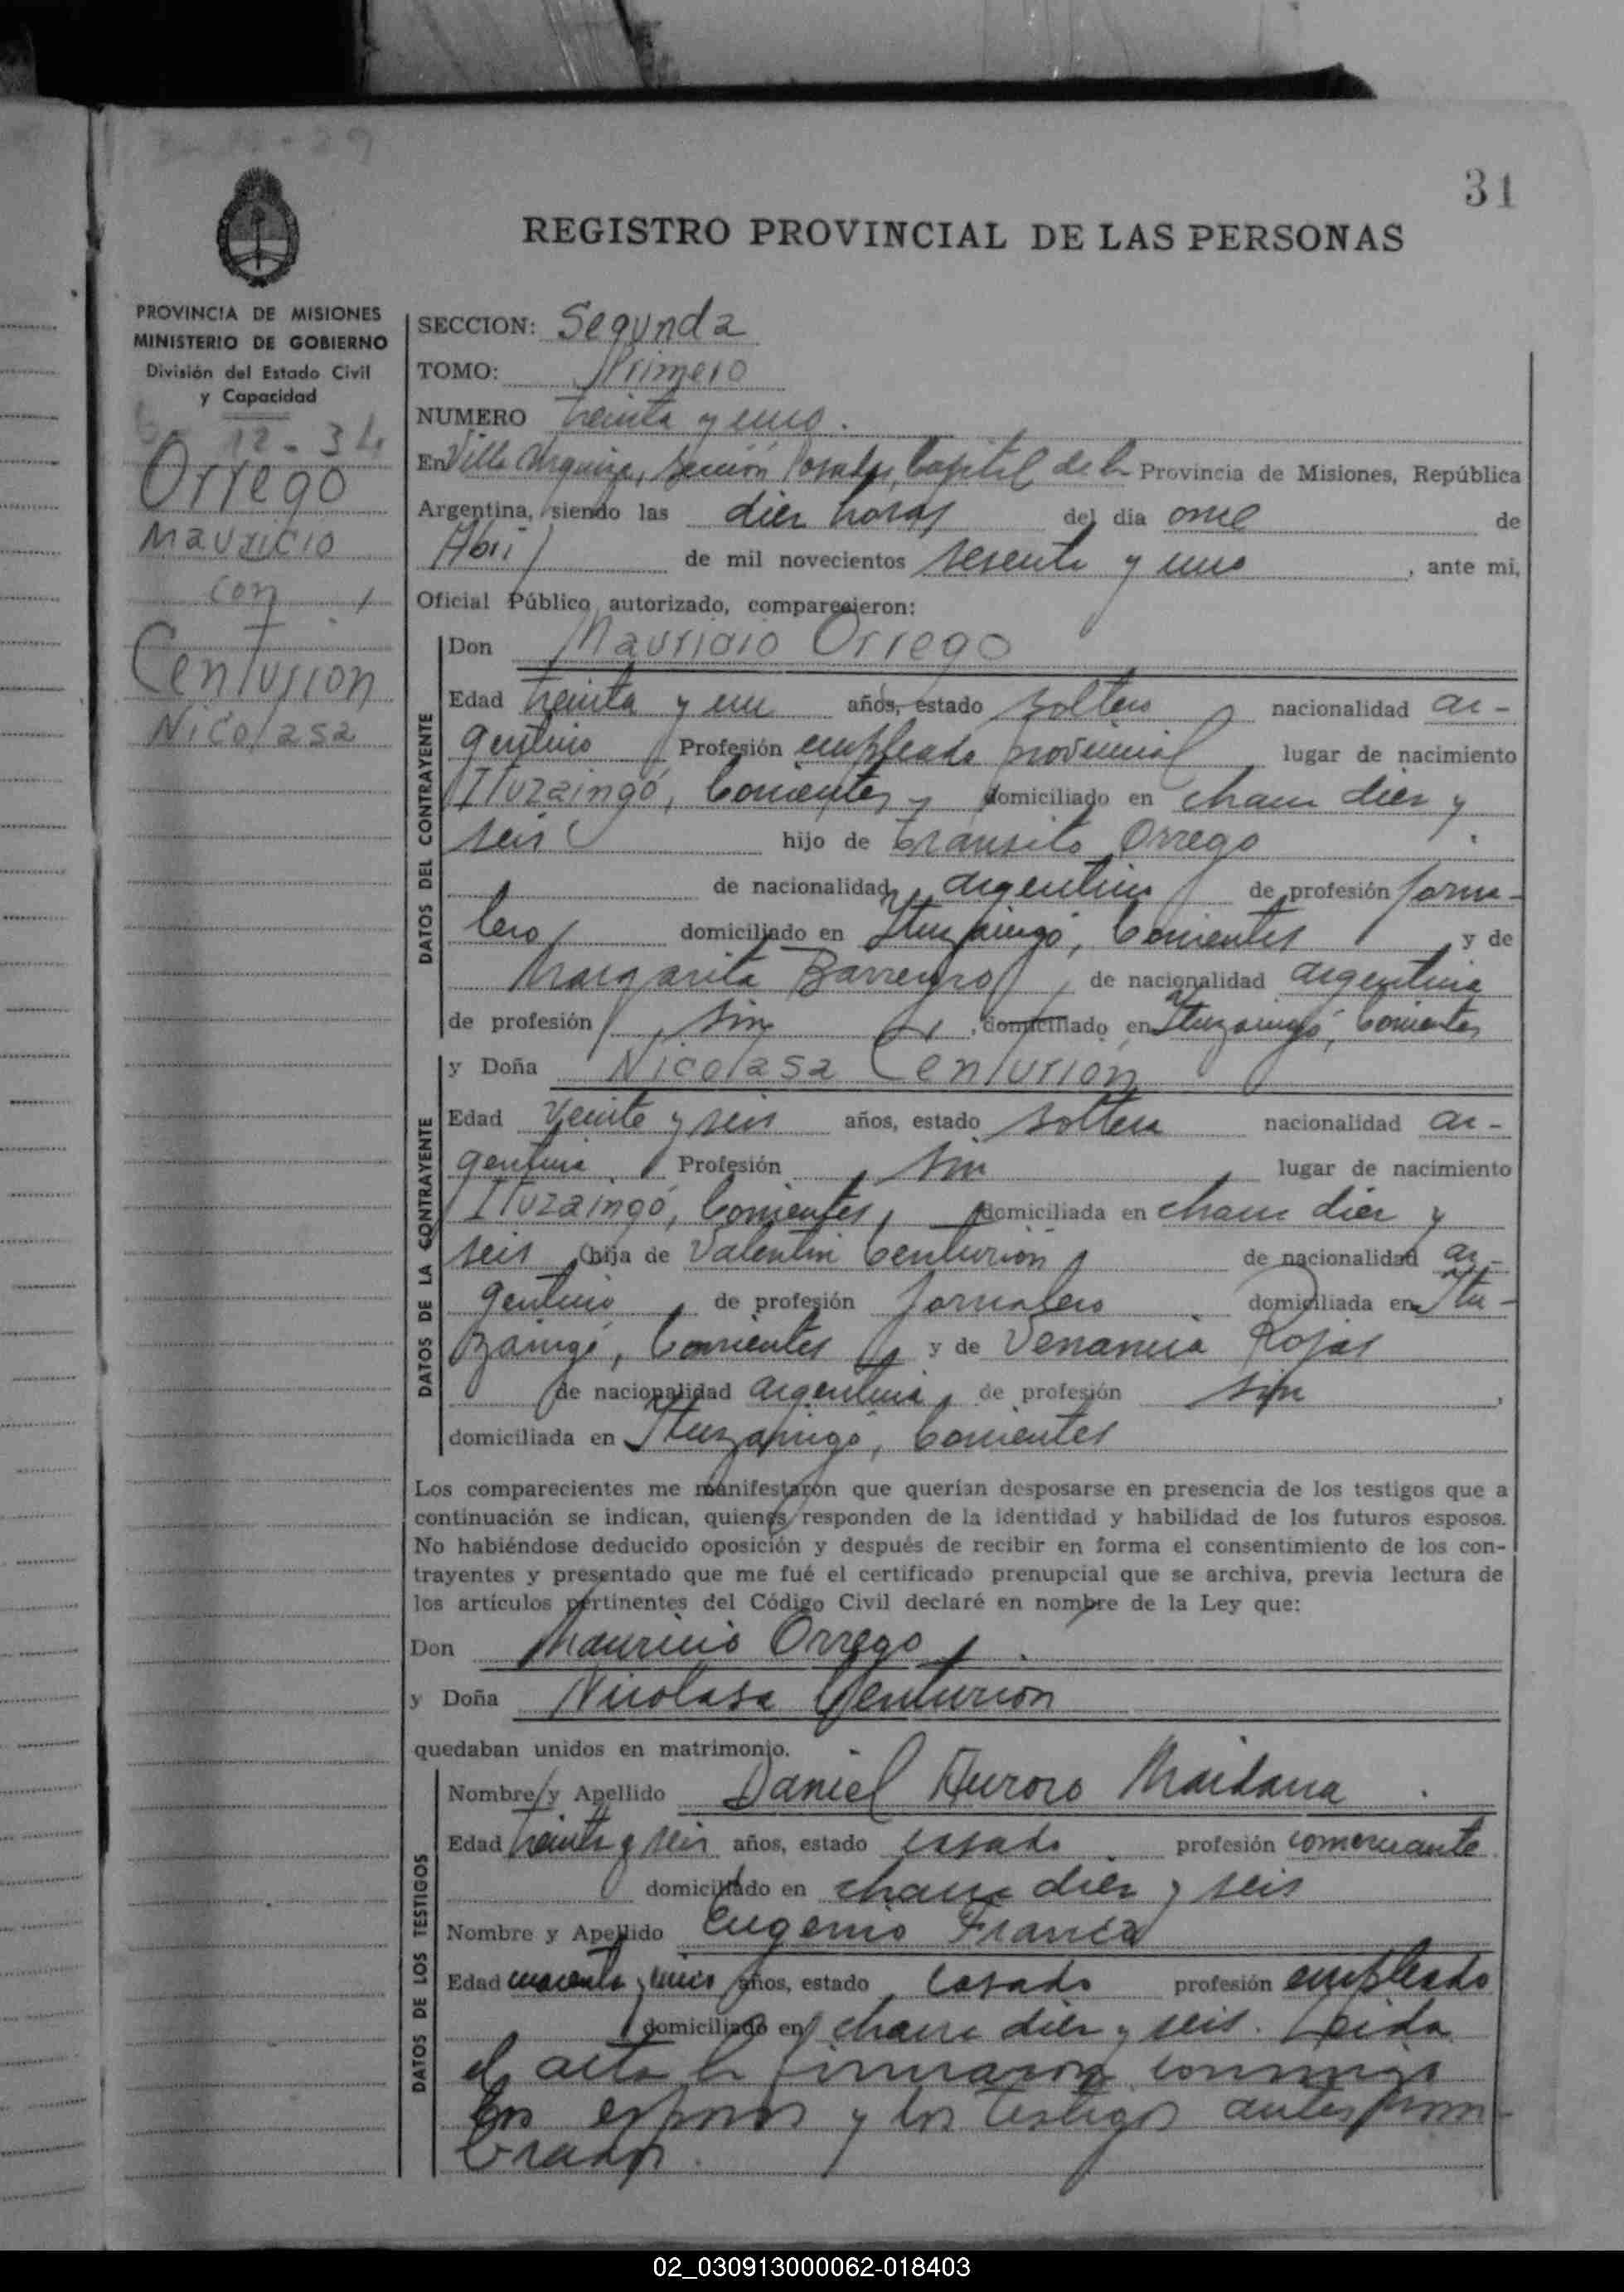 31
REGISTRO PROVINCIAL DE LAS PERSONAS
PROVINCIA DE MISIONES
MINISTERIO DE GOBIERNO
División del Estado Civil
y Capacidad
12-34
Orrego
Mauricio
con
Centurion
Nicolasa
SECCION: Segunda
TOMO: Primero
NUMERO treinta y uno.
En Villa Urquiza, Sección Posadas, Capital de la Provincia de Misiones, República
Argentina, siendo las diez horas del dia once de
Abril de mil novecientos sesenta y uno, ante mi,
Oficial Público autorizado, comparecieron:
DATOS DEL CONTRAYENTE
Don Mauricio Orrego
Edad treinta y un años, estado soltero nacionalidad ar-
gentino Profesión empleado provincial lugar de nacimiento
Ituzaingó, Corrientes, domiciliado en chacra diez y
seis hijo de Tránsito Orrego
de nacionalidad argentino de profesión jorna-
lero domiciliado en Ituzaingó, Corrientes y de
Margarita Barreyro, de nacionalidad argentina
de profesión sin, domiciliado en Ituzaingó, Corrientes
DATOS DE LA CONTRAYENTE
y Doña Nicolasa Centurión
Edad veinte y seis años, estado soltera nacionalidad ar-
gentina Profesión sin lugar de nacimiento
Ituzaingó, Corrientes, domiciliada en chacra diez y
seis hija de Valentin Centurión de nacionalidad ar-
gentino, de profesión jornalero domiciliada en Itu-
zaingó, Corrientes y de Venancia Rojas
de nacionalidad argentina, de profesión sin,
domiciliada en Ituzaingó, Corrientes
Los comparecientes me manifestaron que querían desposarse en presencia de los testigos que a
continuación se indican, quienes responden de la identidad y habilidad de los futuros esposos.
No habiéndose deducido oposición y después de recibir en forma el consentimiento de los con-
trayentes y presentado que me fué el certificado prenupcial que se archiva, previa lectura de
los artículos pertinentes del Código Civil declaré en nombre de la Ley que:
Don Mauricio Orrego
y Doña Nicolasa Centurion
quedaban unidos en matrimonio.
DATOS DE LOS TESTIGOS
Nombre y Apellido Daniel Auroro Maidana
Edad treinta y seis años, estado casado profesión comerciante
domiciliado en chacra diez y seis
Nombre y Apellido Eugenio Franca
Edad cuarenta y cinco años, estado casado profesión empleado
domiciliado en chacra diez y seis. Leida
el acta la firmaron conmigo
los esposos y los testigos antes nom-
brados.
02_030913000062-018403